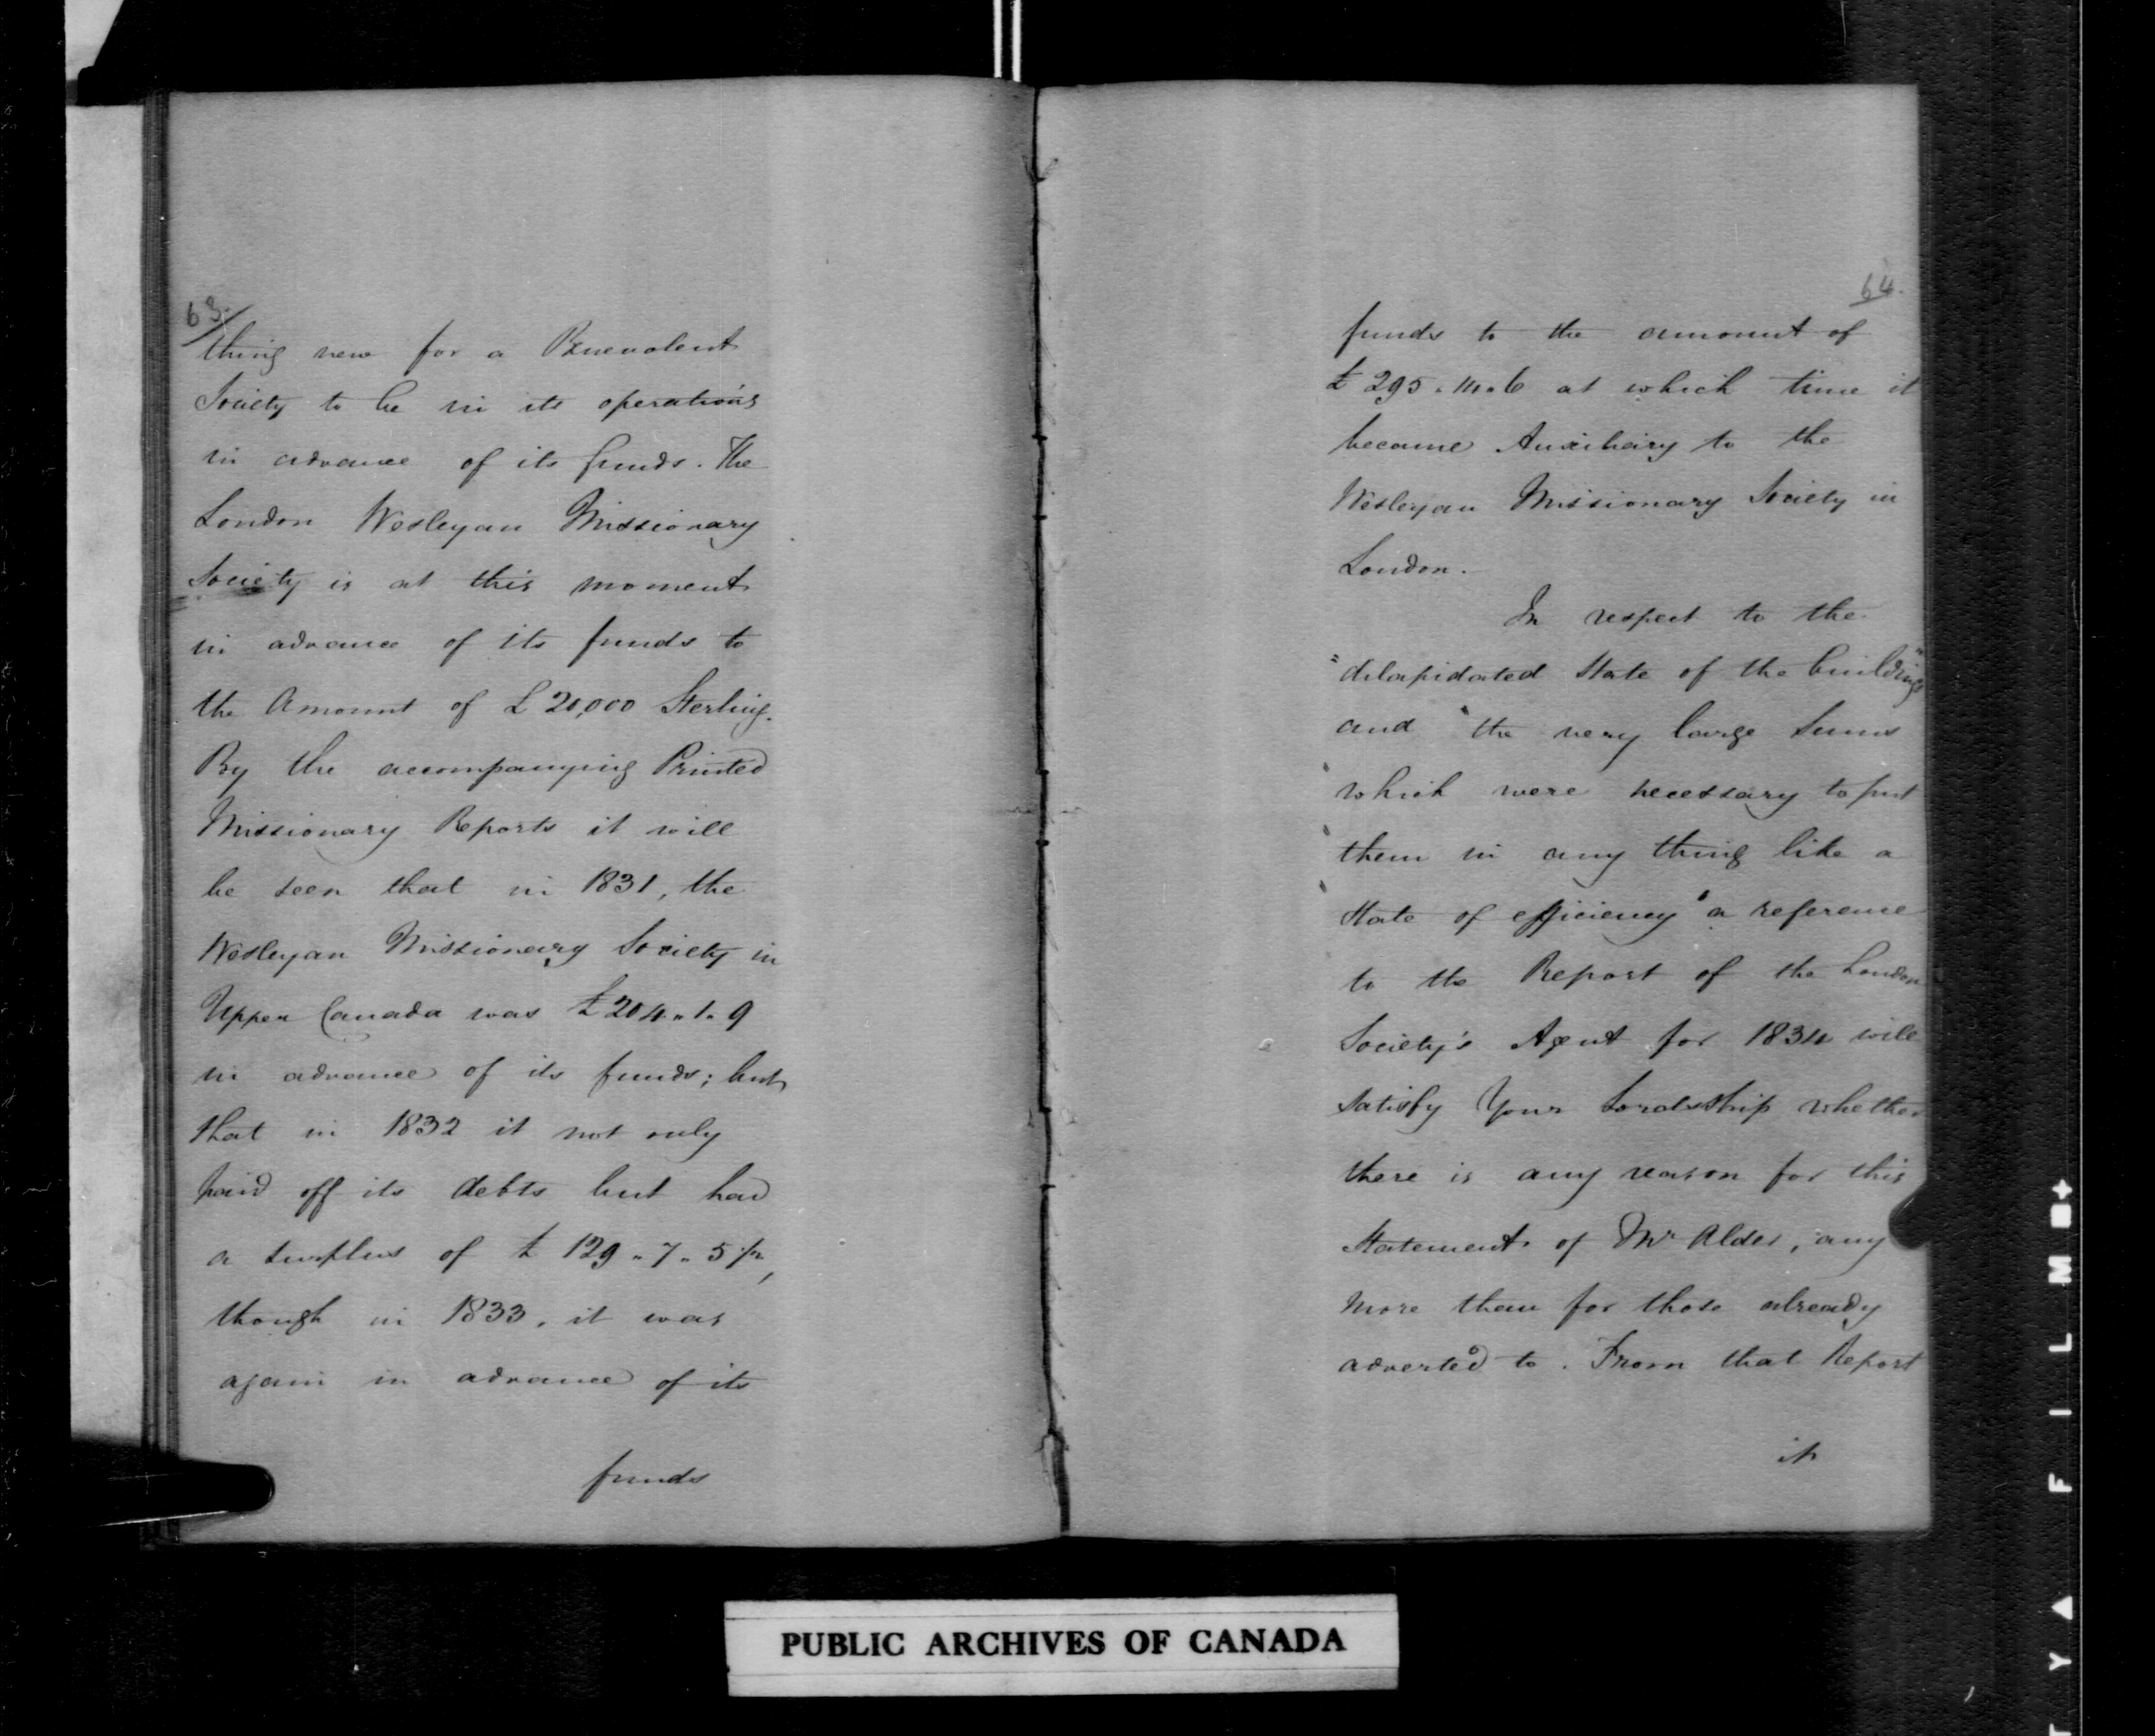 63.
thing new for a Benevolent
Society to be in its operations
in advance of its funds. The
London Wesleyan Missionary
Society is at this moment
in advance of its funds to
the Amount of £20,000 Sterling.
By the accompanying Printed
Missionary Reports it will
be seen that in 1831, the
Wesleyan Missionary Society in
Upper Canada was £204.1.9
in advance of its funds; but
that in 1832 it not only
paid off its debts but had
a surplus of £129.7.5½,
though in 1833, it was
again in advance of its
funds
64.
funds to the amount of
£295.14.6 at which time it
became Auxiliary to the
Wesleyan Missionary Society in
London.
In respect to the
"dilapidated State of the buildings"
and "the very large Sums
which were necessary to put
them in any thing like a
State of efficiency" a reference
to the Report of the London
Society's Agent for 1834 will
satisfy Your Lordship whether
there is any reason for this
Statement of Mr Alder, any
more than for those already
adverted to. From that Report
it
PUBLIC ARCHIVES OF CANADA